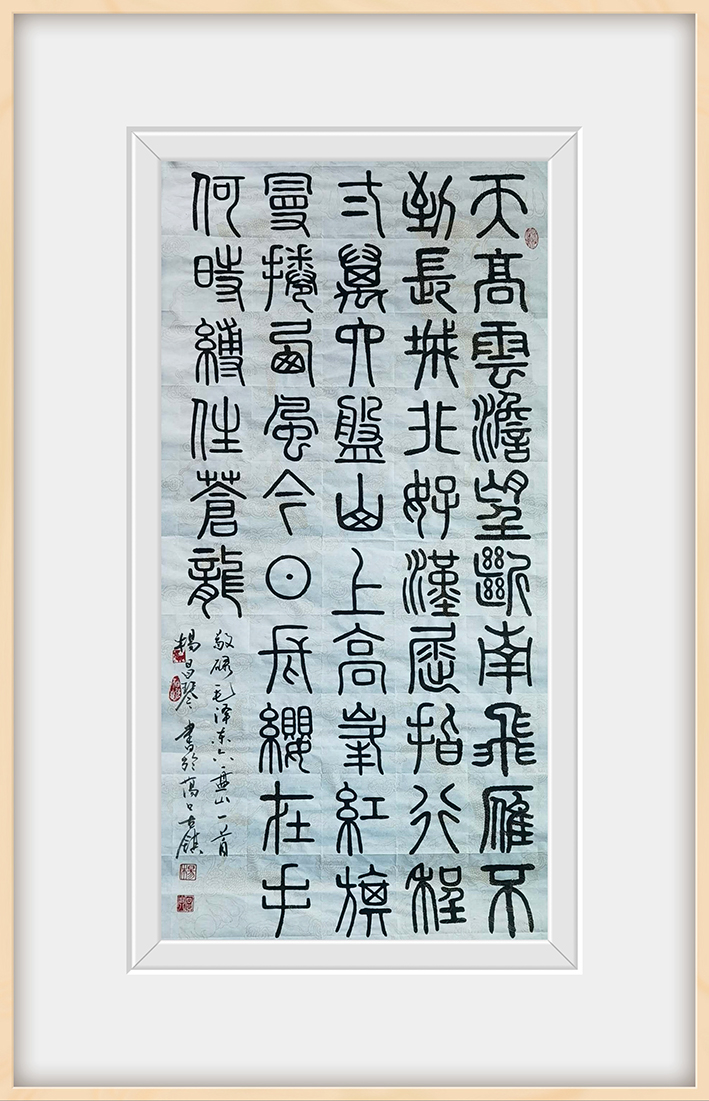 天高雲澹望斷南飛雁不
到長城非好漢屈指行程
弍萬六盤山上高峯紅旗
曼捲西風今日長纓在手
何時縛住蒼龍
敬録毛泽东六盘山一首
楊昌琴書於蕩口古鎮